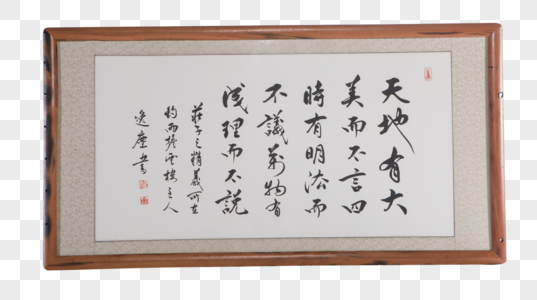 天地有大
美而不言四
時有明法而
不議萬物有
成理而不說
莊子之精義可在
逸塵書